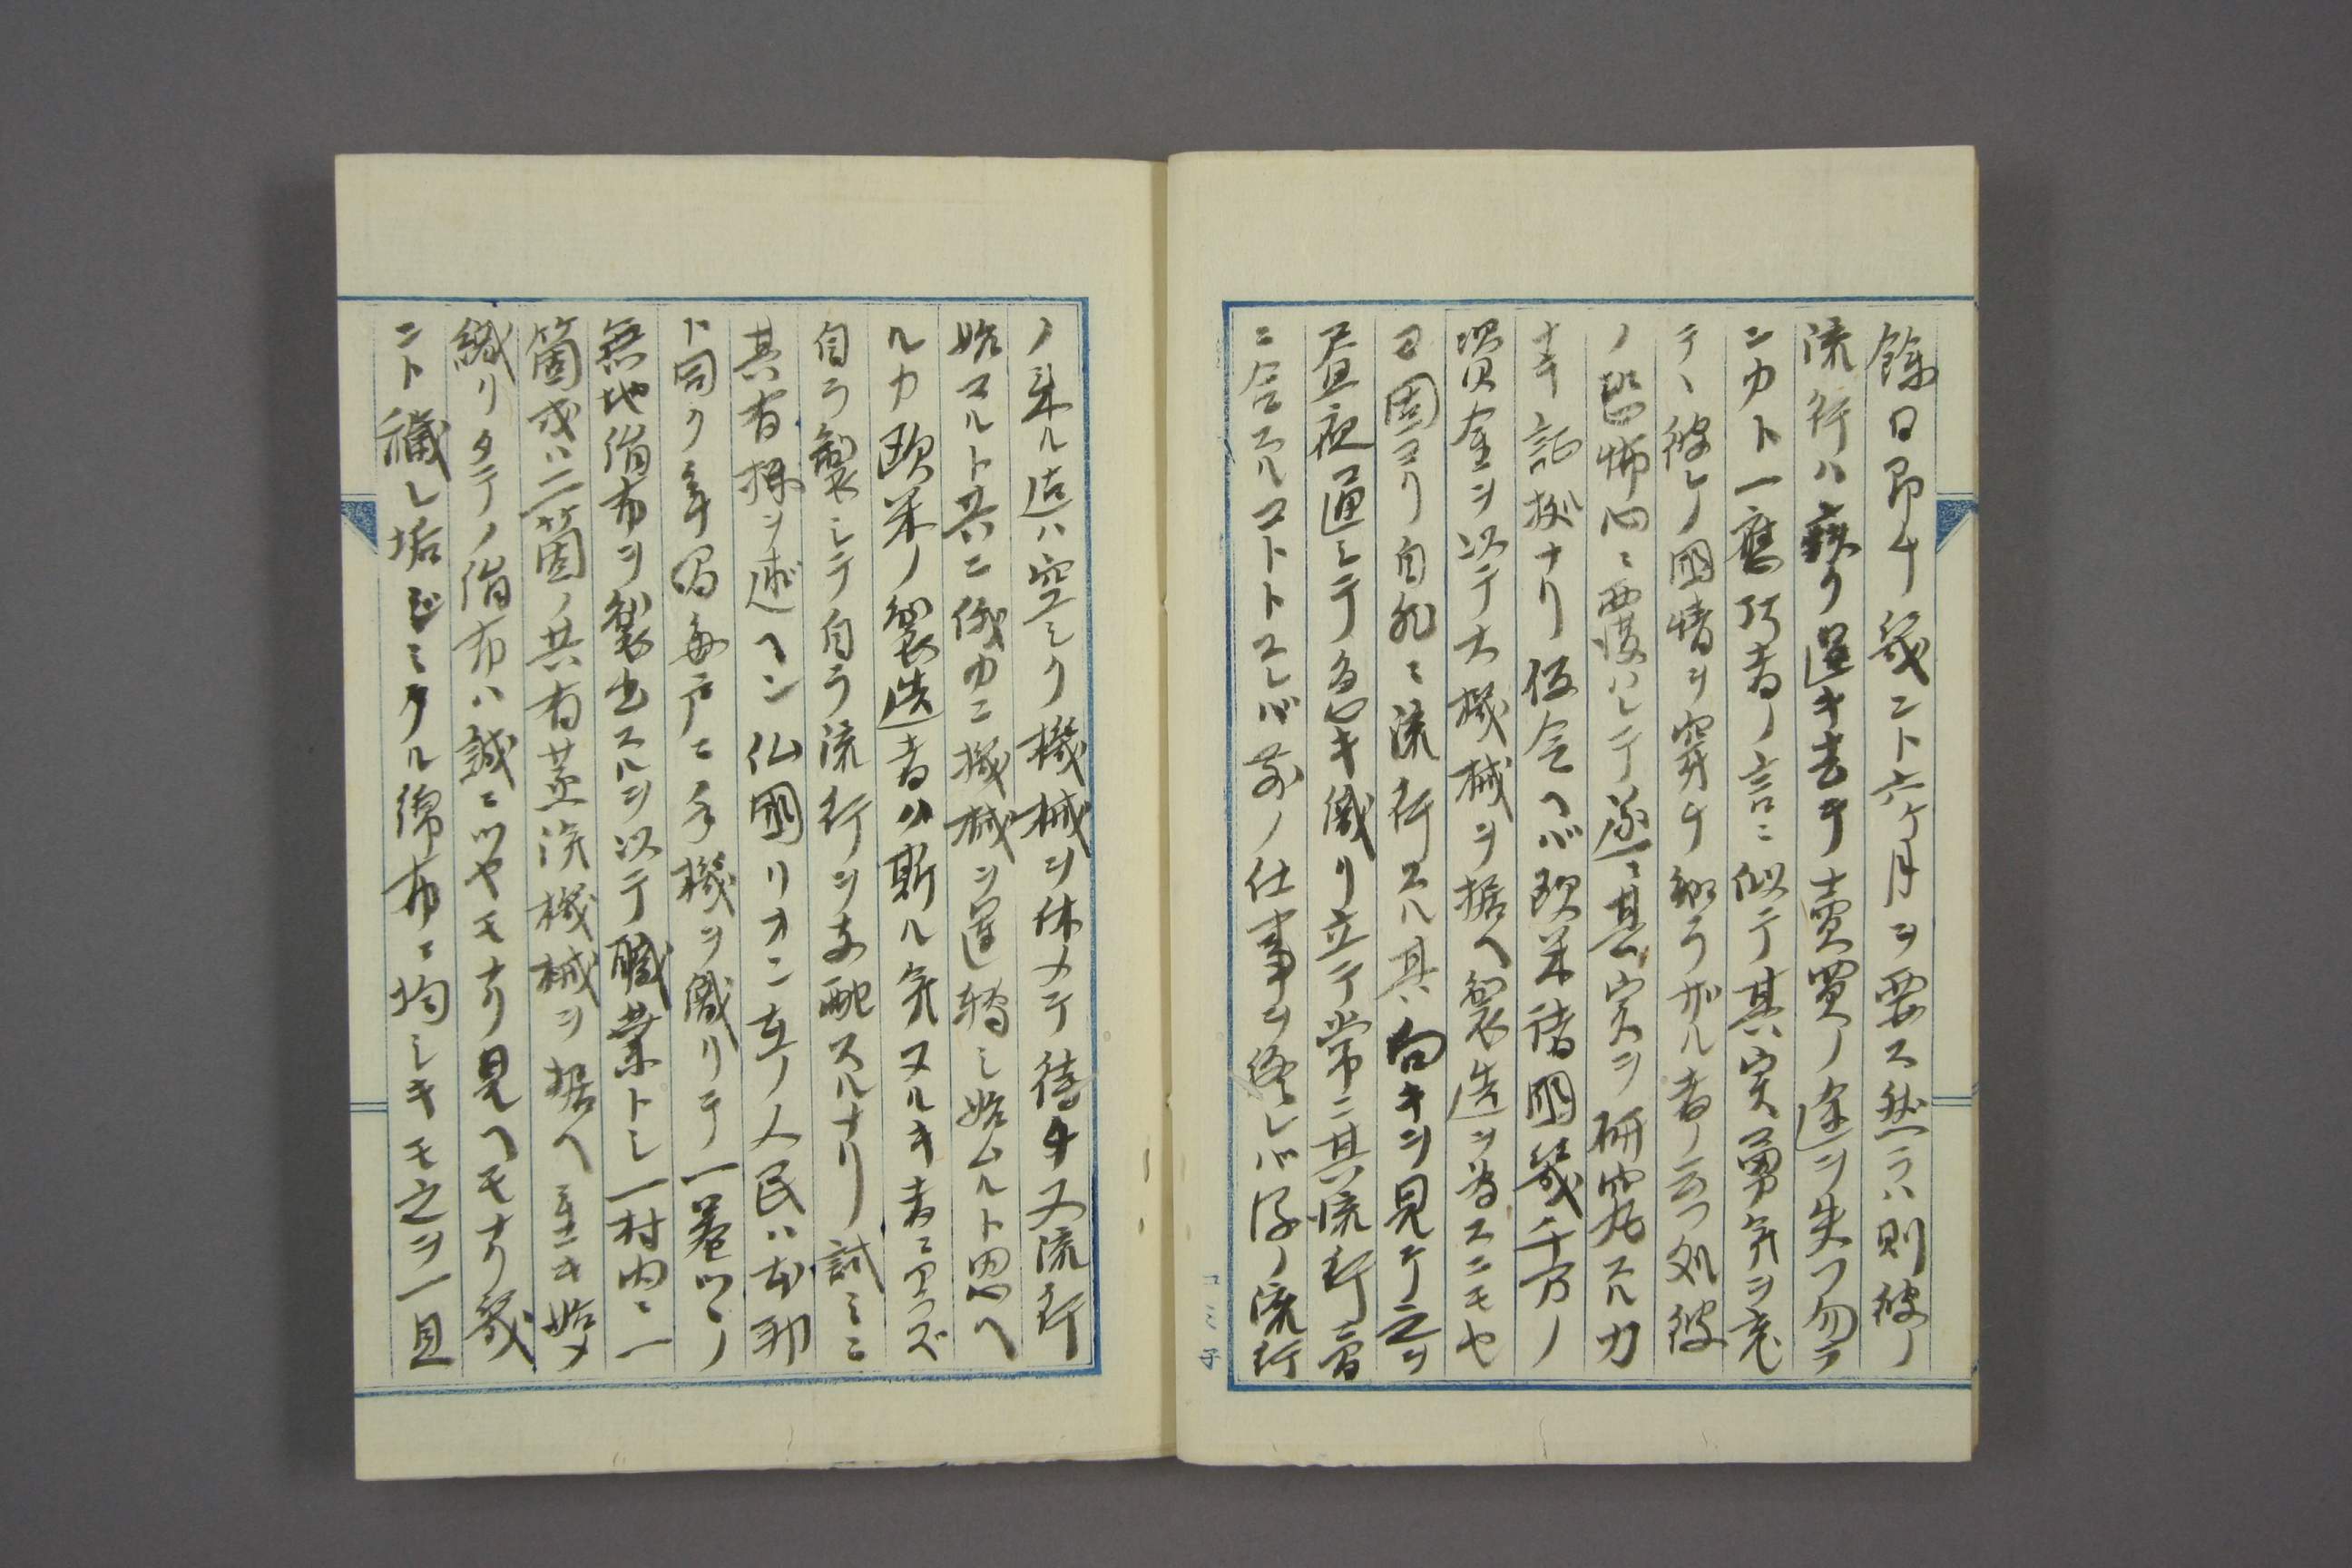 餘日即チ幾ント六ケ月ヲ要ス然ラハ則彼ノ
流行ハ疾ク過キ去テ賣買ノ途ヲ失フ勿ラ
ンカト一應巧者ノ言ニ似テ其実勇気ヲ
テ、彼レノ國情ヲ穿チ知ラザル者ノ云フ処彼
ノ恐怖心ニ覆ハレテ遂ニ其実ヲ研究スル力
ナキ証拠ナリ仮令ヘバ欧米諸國幾千万ノ
資金ヲ以テ大機械ヲ据ヘ製造ヲ為スニモセ
ヨ固ヨリ自然ニ流行スル其向キヲ見テ之ヲ
昼夜通シテ急キ織リ立テ常ニ其流行
ニ合スルコトトスレバ前ノ仕事ヲ終レバ後ノ流行
ノ来ル迄ハ空シク機械ヲ休メテ待チ又流行
始マルト共ニ俄カニ機械ヲ運轉シ始ムルト思ヘ
ルカ欧米ノ製造者ハ斯ル気ヌルキ者ニアラズ
自ラ製シテ自ラ流行ヲ支配スルナリ試ミニ
其有様ヲ述ヘン仏國リオン在ノ人民ハ本邦
ト同ク毎戸ニ手機ヲ織リテ一巻ツヽノ
無地絹布ヲ製出スルヲ以テ職業トシ一村内ニ一
箇或ハ二箇ノ共有蒸滊機械ヲ据ヘ置キ始メ
織リタテノ絹布ハ誠ニツヤモナク見ヘモナク幾
ント穢レ垢ジミタル綿布ニ均シキモ之ヲ一旦